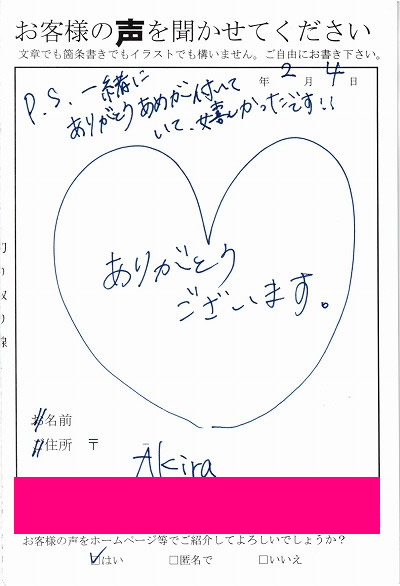 お客様の声を聞かせてください
文章でも箇条書きでもイラストでも構いません。ご自由にお書き下さい。
年 2 月 4 日
P.S. 一緒に
ありがとうあめが付いて
いて、嬉しかったです!!
ありがとう
ございます。
お名前
ご住所 〒
Akira
お客様の声をホームページ等でご紹介してよろしいでしょうか?
☑はい □匿名で □いいえ